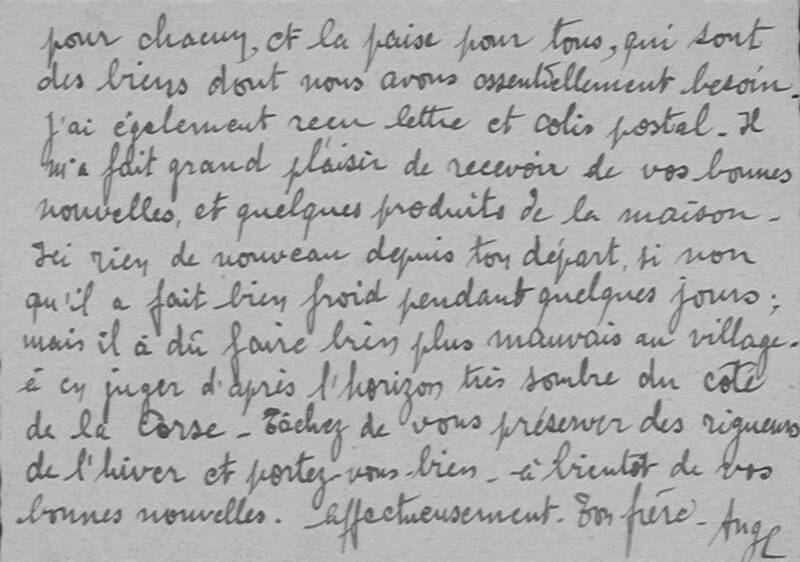 pour chacun, et la paise pour tous, qui sont
des biens dont nous avons essentiellement besoin.
J'ai également reçu lettre et colis postal - Il
m'a fait grand plaisir de recevoir de vos bonnes
nouvelles, et quelques produits de la maison -
Ici rien de nouveau depuis ton départ, si non
qu'il a fait bien froid pendant quelques jours ;
mais il à dû faire bien plus mauvais au village.
à en juger d'après l'horizon très sombre du coté
de la Corse - Tâchez de vous préserver des rigueurs
de l'hiver et portez-vous-bien - à bientôt de vos
bonnes nouvelles. affectueusement - Ton frère - Ange